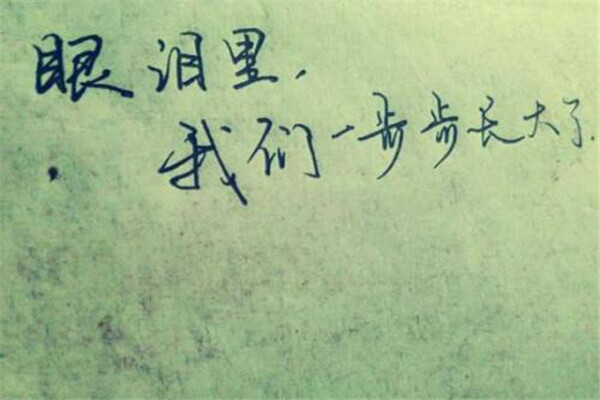 眼泪里，
我们一步步长大了.